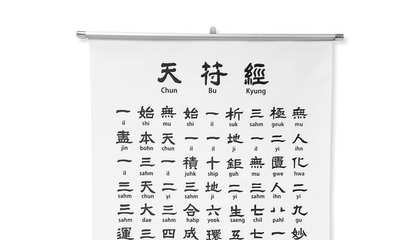 天 符 經
Chun Bu Kyung
一 始 無 始 一 析 三 極 無
il shi mu shi il suk sahm geuk mu
盡 本 天 一 一 地 一 二 人
jin bohn chun il il ji il yi ihn
一 三 一 積 十 鉅 無 匱 化
il sahm il juhk ship guh mu gwe hwa
三 天 二 三 地 二 三 人 二
sahm chun yi sahm ji yi sahm ihn yi
三 大 三 合 六 生 七 八 九
sahm dae sahm hahp yook saeng chil pahl gu
運 三 四 成 環 五 七 一 妙